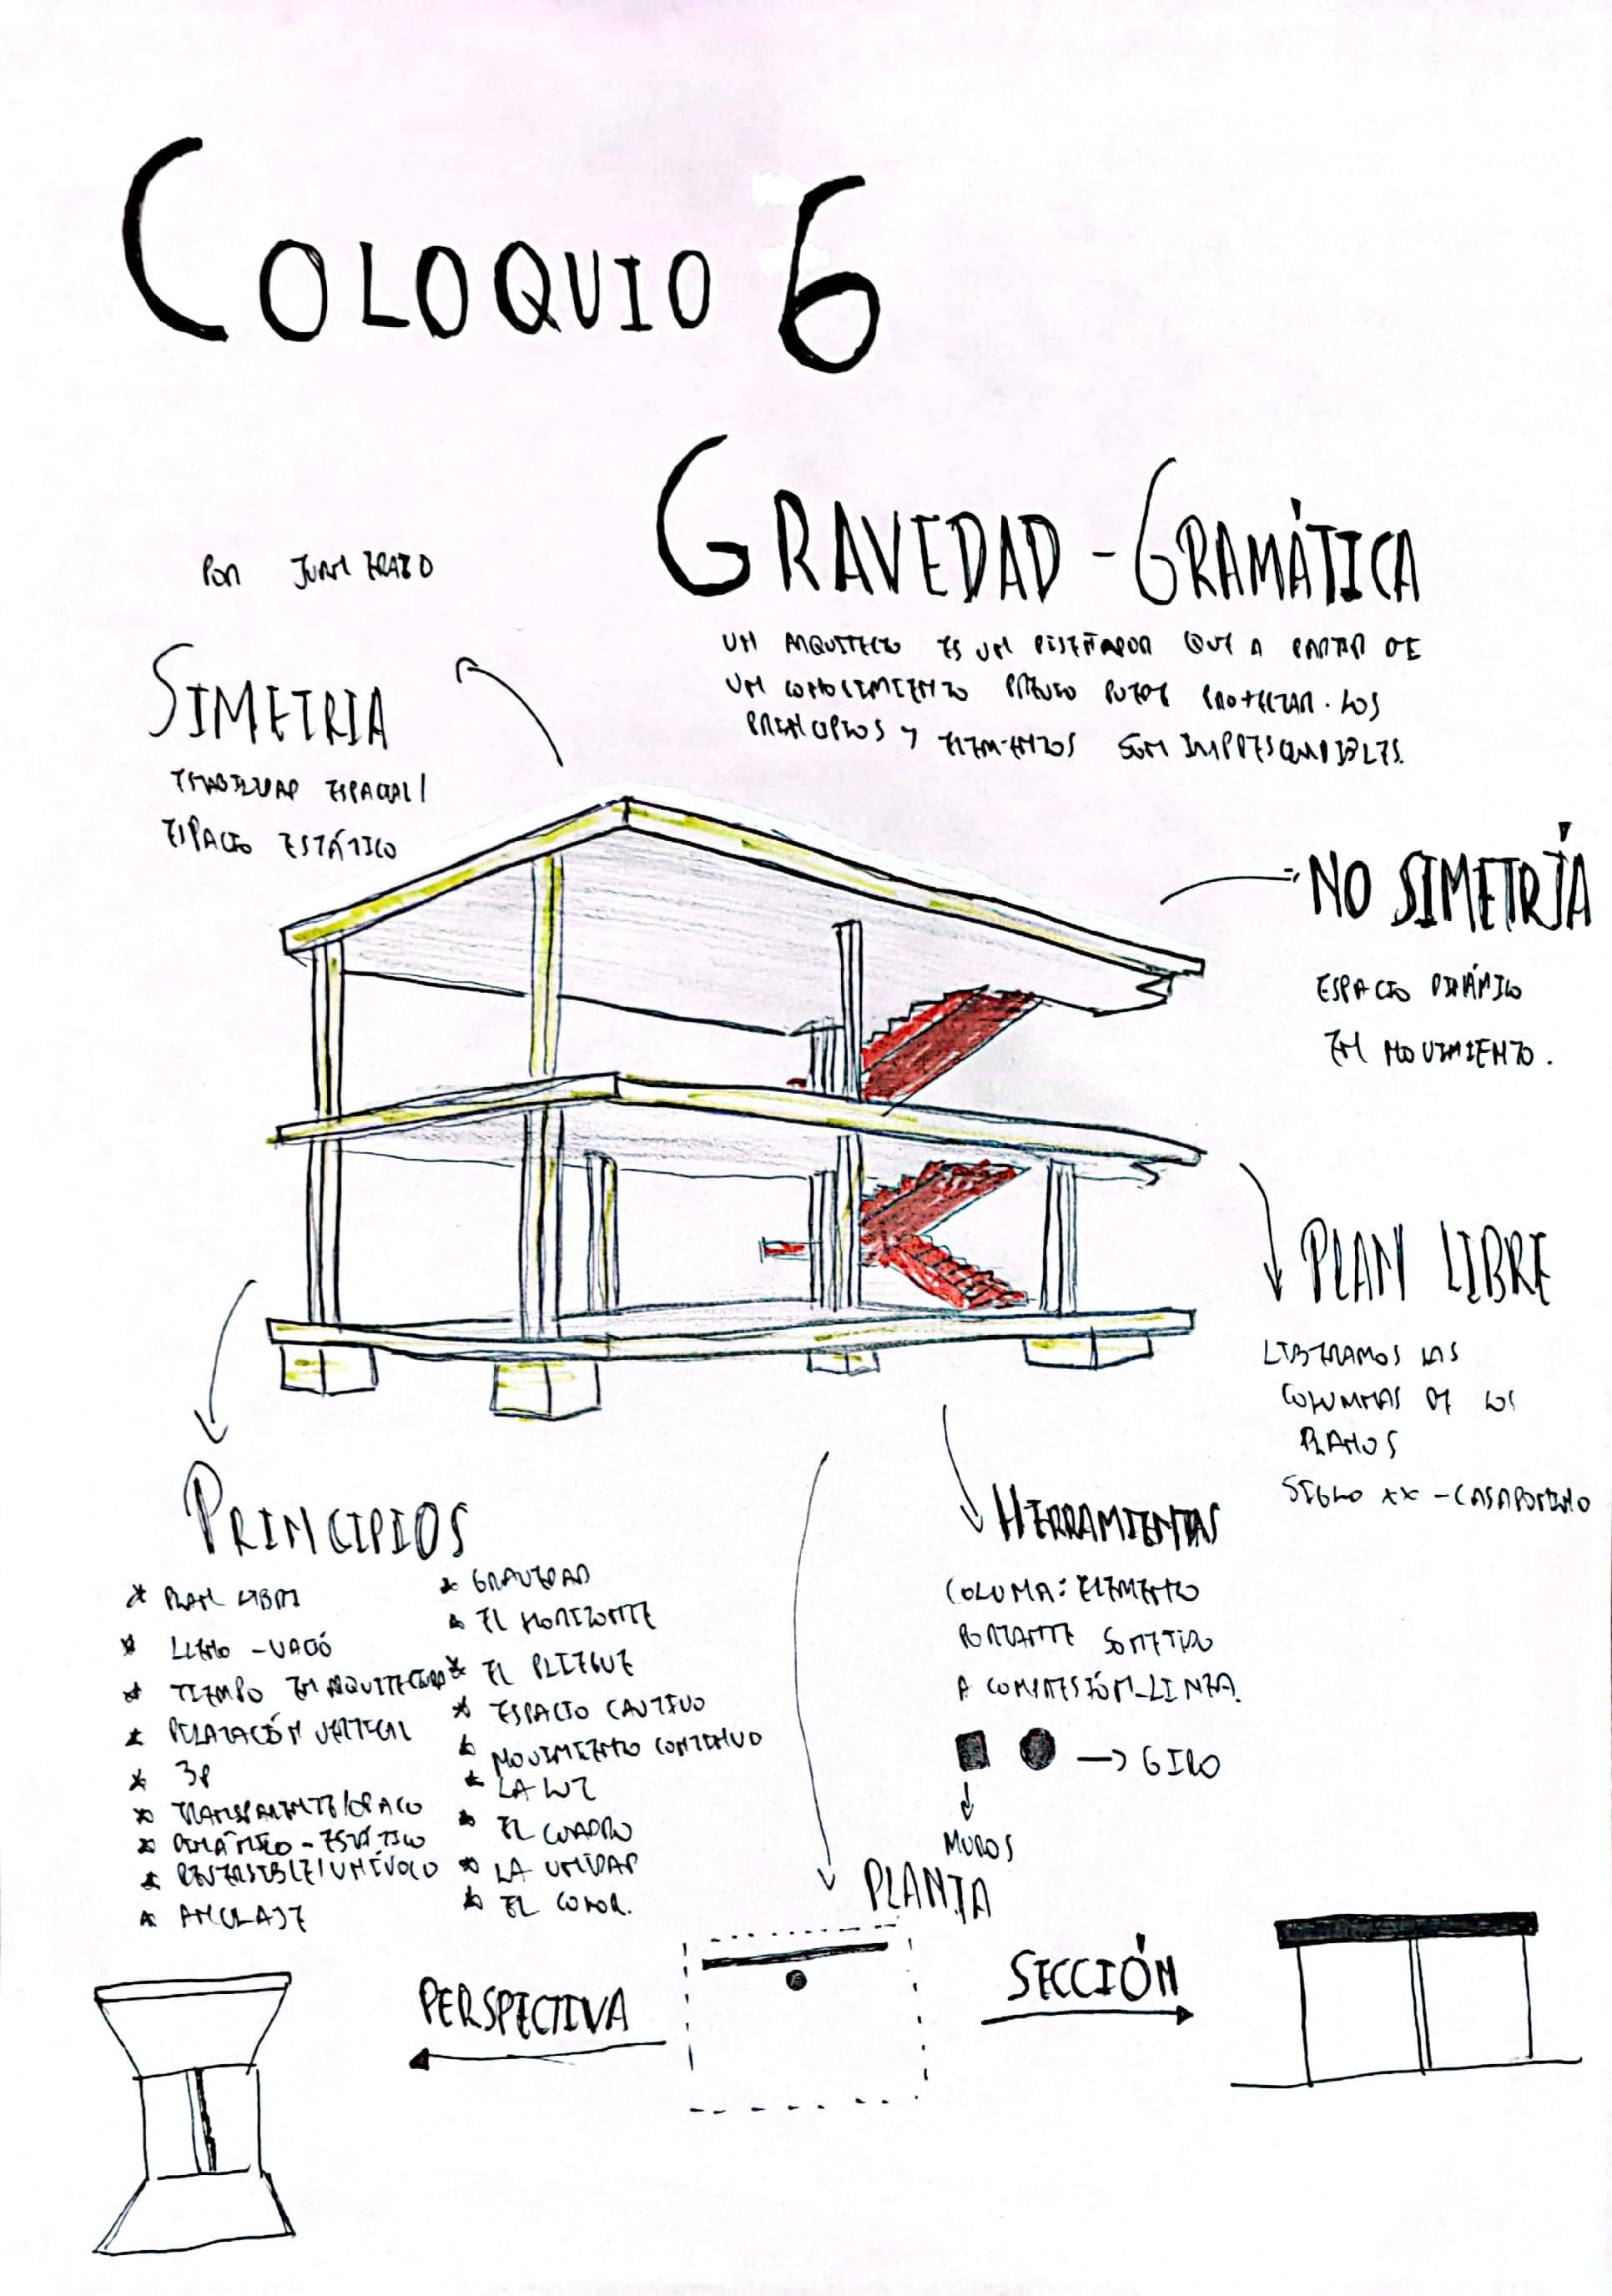 COLOQUIO 6
GRAVEDAD - GRAMÁTICA
POR JUAN ERAZO
UN ARQUITECTO ES UN DISEÑADOR QUE A PARTIR DE
UN CONOCIMIENTO PREVIO PUEDE PROYECTAR. LOS
PRINCIPIOS Y ELEMENTOS SON IMPRESCINDIBLES.
SIMETRIA
ESTABILIDAD ESPACIAL/
ESPACIO ESTÁTICO
NO SIMETRÍA
ESPACIO DINÁMICO
EN MOVIMIENTO.
PLAN LIBRE
LIBERAMOS LAS
COLUMNAS DE LOS
PLANOS
SIGLO XX - CASA DOMINO
PRINCIPIOS
* PLAN LIBRE
* LLENO - VACÍO
* TIEMPO EN ARQUITECTURA
* RELACIÓN VERTICAL
* 3P
* TRANSPARENTE/OPACO
* DINÁMICO - ESTÁTICO
* REVERSIBLE/UNÍVOCO
* ANCLAJE
* GRAVEDAD
* EL HORIZONTE
* EL PLIEGUE
* ESPACIO CAUTIVO
* MOVIMIENTO CONTINUO
* LA LUZ
* EL CUADRO
* LA UNIDAD
* EL COLOR.
HERRAMIENTAS
COLUMNA: ELEMENTO
PORTANTE SOMETIDO
A COMPRESIÓN-LINEA.
→ GIRO
MUROS
PLANTA
PERSPECTIVA
SECCIÓN